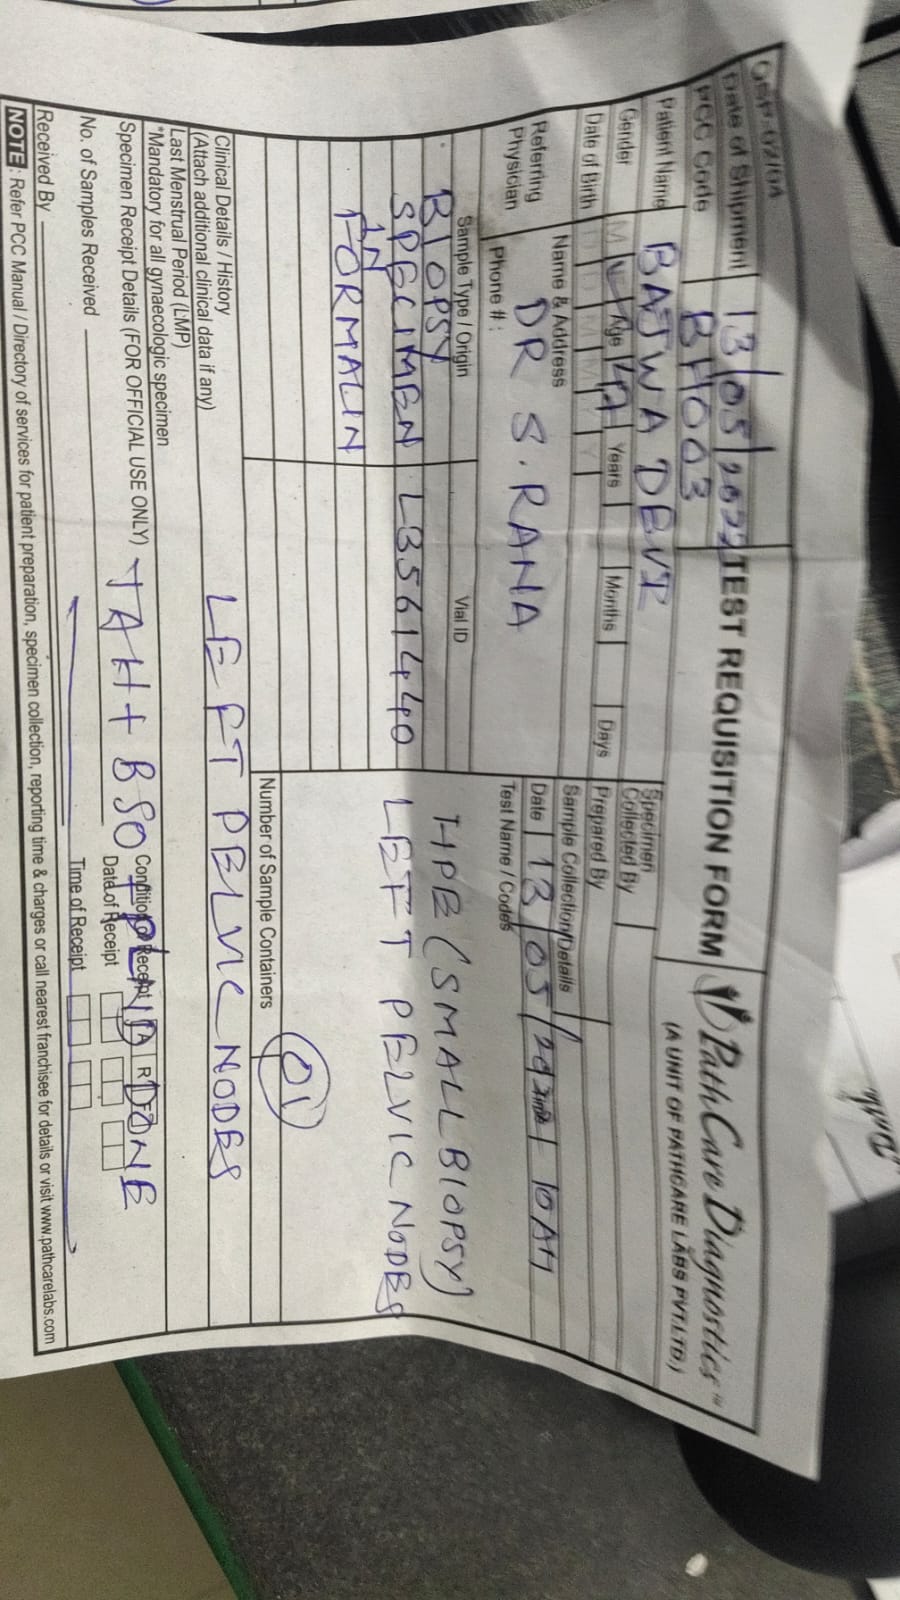 QSP-02/04
Date of Shipment 13/05/2022 TEST REQUISITION FORM PathCare Diagnostics™
PCC Code BH003 (A UNIT OF PATHCARE LABS PVT.LTD.)
Patient Name BAJWA DEVI
Specimen Collected By
Gender M Age 47 Years Months Days Prepared By
Date of Birth D D M M Y Y
Sample Collection Details
Date 13/05/2022 Time 10 AM
Referring Physician
Name & Address
DR S. RANA
Phone # :
Test Name / Codes
Sample Type / Origin Vial ID
BIOPSY HPE (SMALL BIOPSY)
SPECIMEN L3561440 LEFT PELVIC NODES
IN
FORMALIN
Number of Sample Containers 01
Clinical Details / History
(Attach additional clinical data if any)
LEFT PELVIC NODES
Last Menstrual Period (LMP)
*Mandatory for all gynaecologic specimen
Specimen Receipt Details (FOR OFFICIAL USE ONLY) TAH + BSO + PLND DONE
Condition of Receipt A R
No. of Samples Received Date of Receipt
Received By Time of Receipt
NOTE : Refer PCC Manual / Directory of services for patient preparation, specimen collection, reporting time & charges or call nearest franchisee for details or visit www.pathcarelabs.com